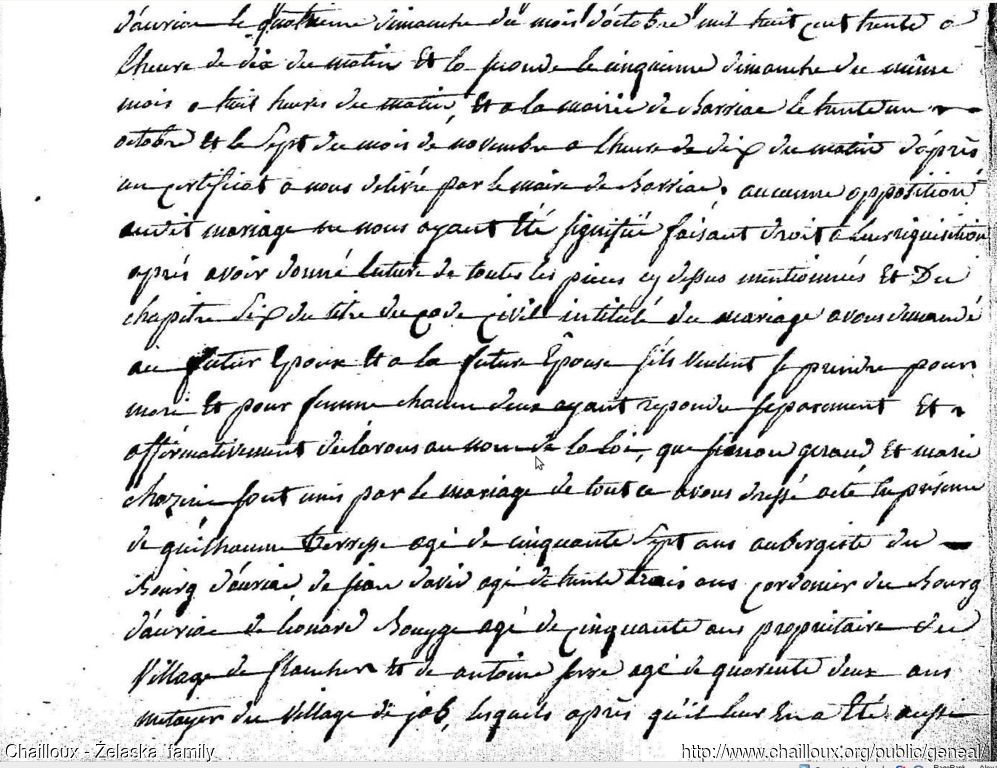 d'auriac le quatrieme dimanche du mois d'octobre mil huit cent trente a
lheure de dix du matin Et la seconde le cinquieme dimanche du même
mois a huit heures du matin, Et a la mairie de Barriac le trente un
octobre Et le Sept du mois de novembre a lheure de dix du matin d'après
un certificat a nous delivré par le maire de Barriac, aucunne opposition
audit mariage ne nous ayant Eté signifiée faisant droit a leur riquisition
aprés avoir donné lecture de toutes les pieces cy dessus mentionnées Et Du
chapitre Six du titre du code Civil intitulé du mariage avons demandé
au futur Epoux Et a la future Epouse s'ils veulent se prendre pour
mari Et pour femme chacun deux ayant repondu separement Et
affirmativement declarons au nom de la loi, que geraud Et marie
sont unis par le mariage de tout ce avons dressé acte En présence
de guilhaume terresse agé de cinquante Sept ans aubergiste du
Bourg d'auriac, de jean david agé de trente trois ans cordonier du Bourg
d'auriac de léonard Bouyge agé de cinquante ans propriétaire du
Village de Et de antoine serre agé de quarente deux ans
metayer du Village de job, lesquels aprés qu'il leur En a Eté aussi
Chailloux - Żelaska family
http://www.chailloux.org/public/geneal/1